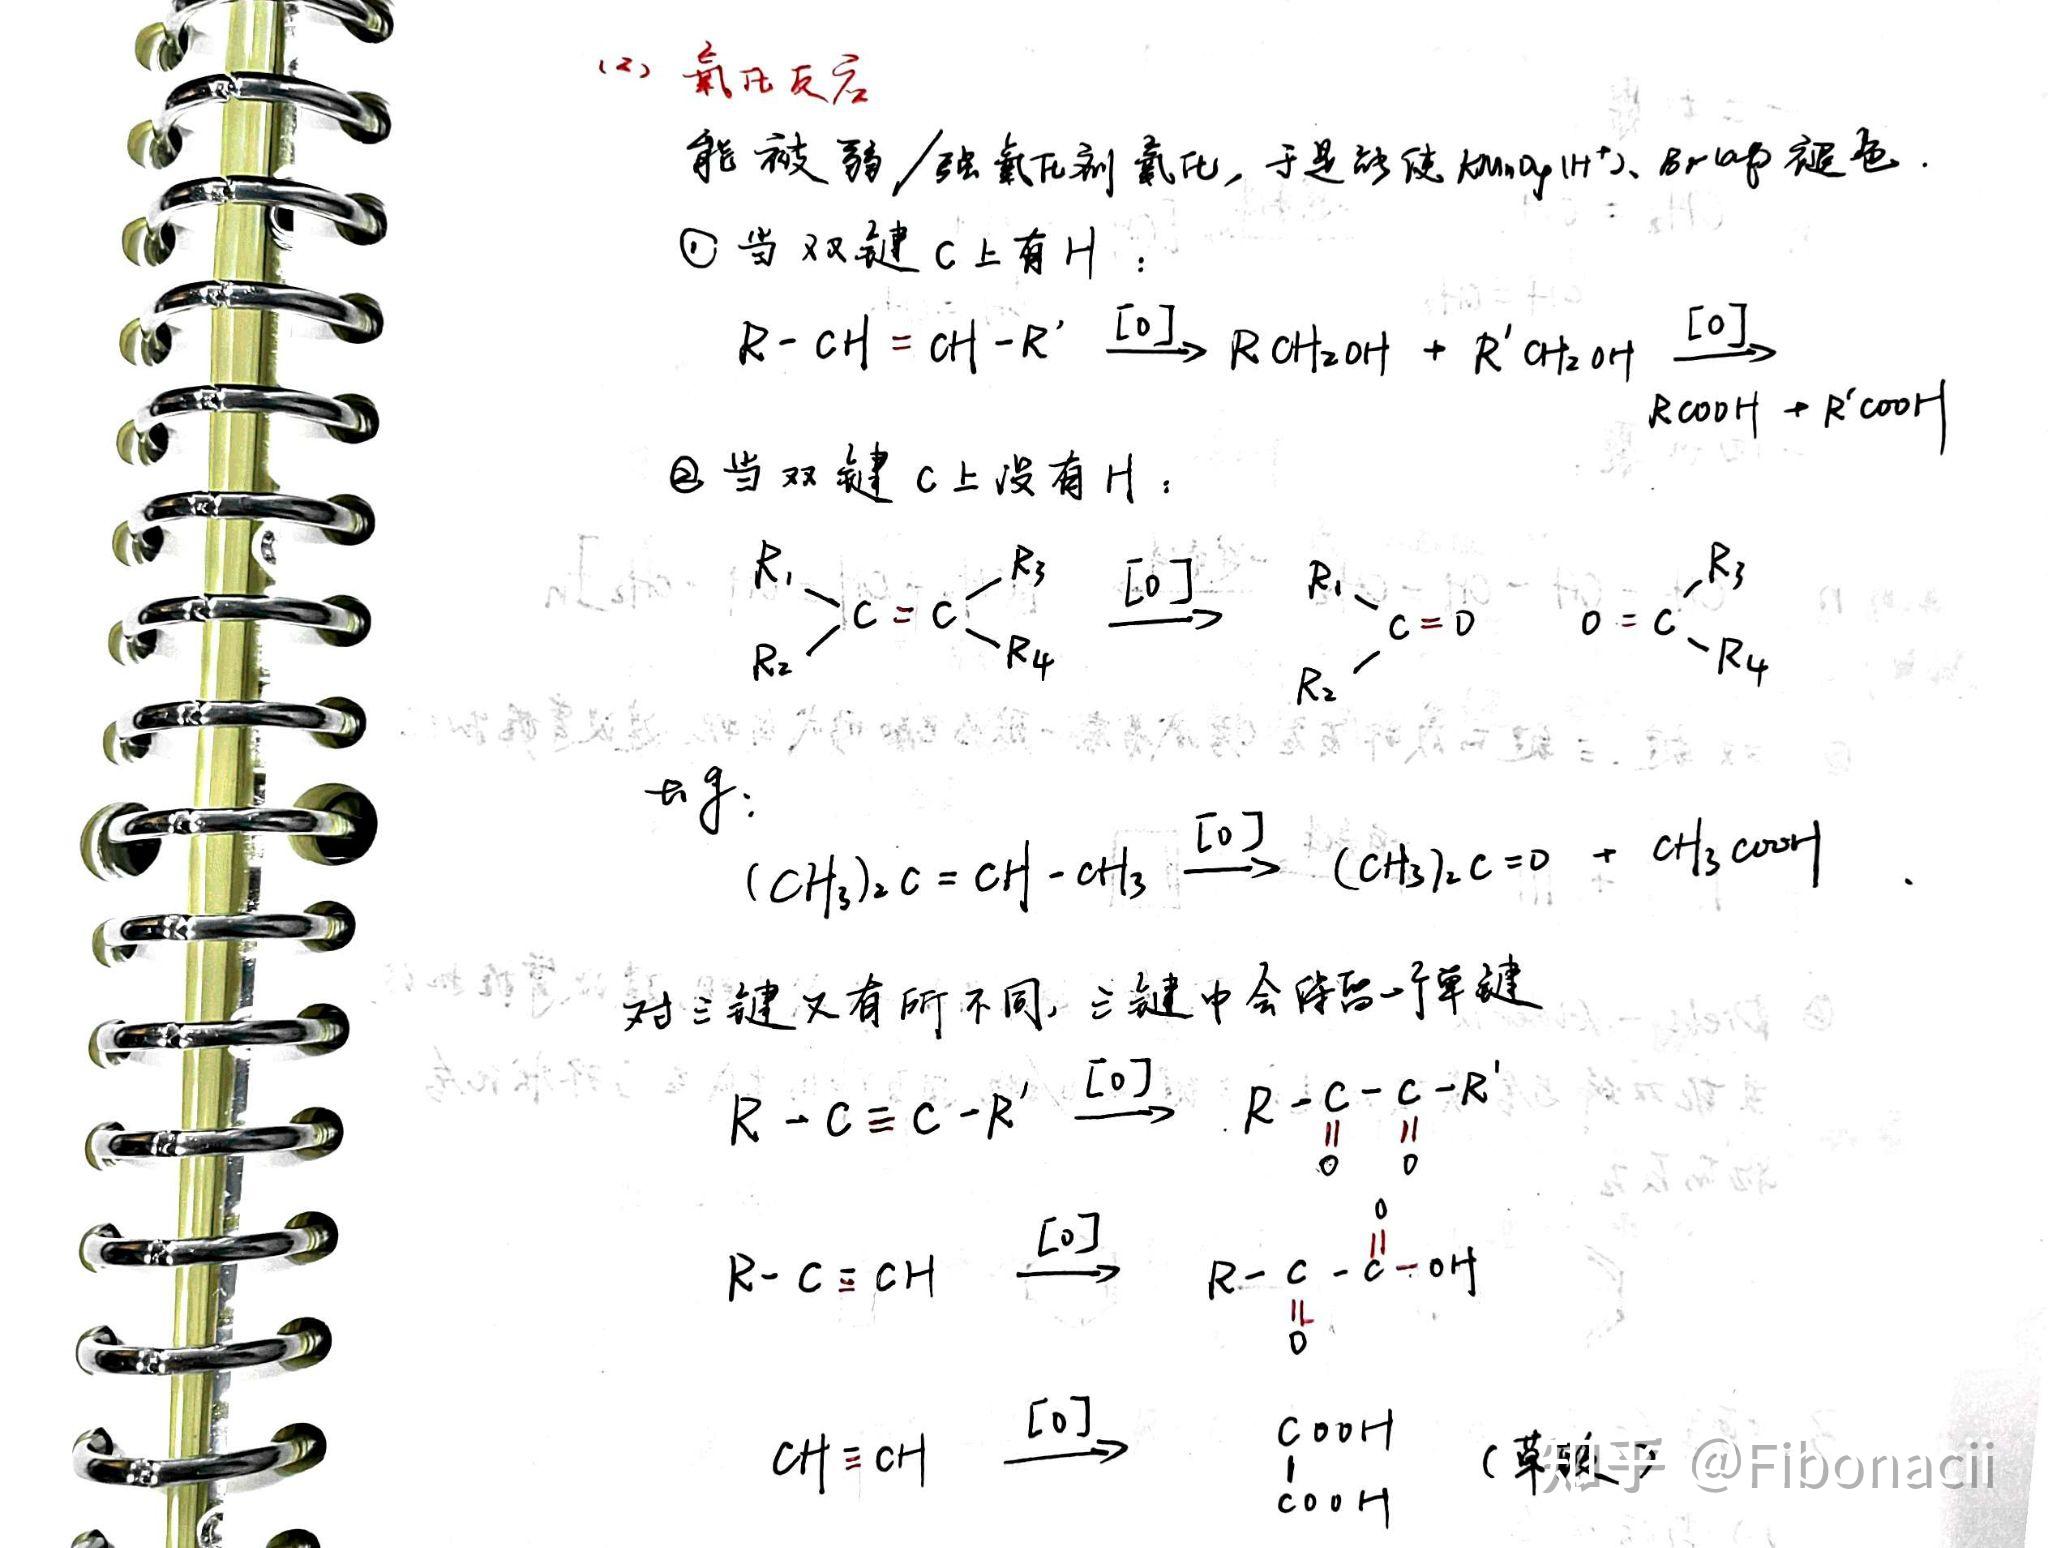 (2) 氧化反应
能被弱/强氧化剂氧化, 于是能使KMnO4(H+)、Br2(aq)褪色.
① 当双键C上有H:
R-CH=CH-R' [O]→ RCH2OH + R'CH2OH [O]→
RCOOH + R'COOH
② 当双键C上没有H:
R1 R3 [O] R1 R3
C=C → C=O O=C
R2 R4 R2 R4
如:
(CH3)2C=CH-CH3 [O]→ (CH3)2C=O + CH3COOH.
对三键又有所不同, 三键中会保留一个单键
R-C≡C-R' [O]→ R-C-C-R'
O O
O
R-C≡CH [O]→ R-C-C-OH
O
CH≡CH [O]→ COOH (草酸)
COOH
知乎 @Fibonacii